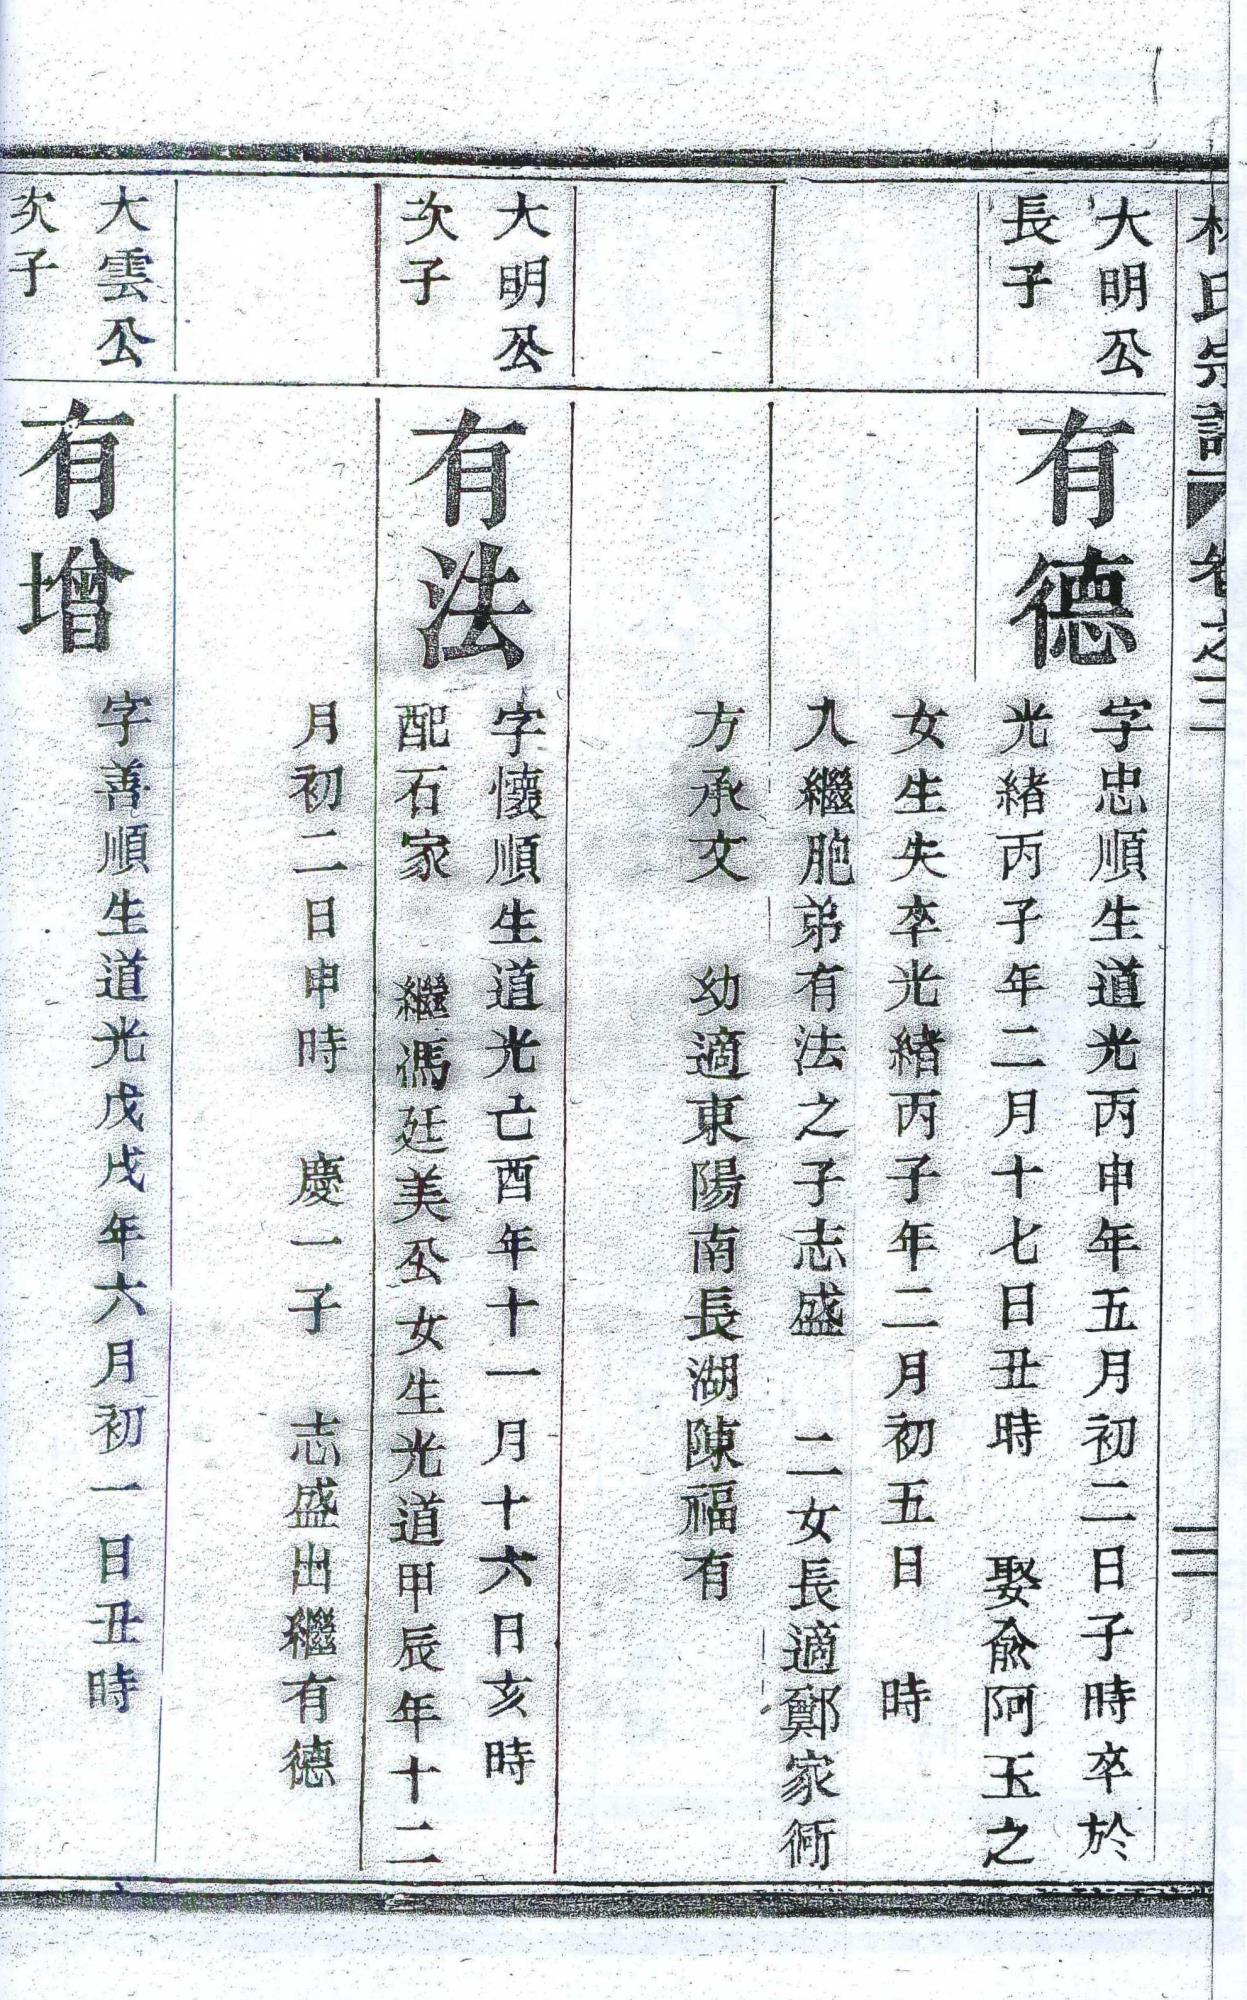 林氏宗譜 卷之二
二
大明公
長子
有德
字忠順生道光丙申年五月初二日子時卒於
光緒丙子年二月十七日丑時 娶俞阿玉之
女生失卒光緒丙子年二月初五日 時
九繼胞弟有法之子志盛 二女長適鄭家衕
方承文 幼適東陽南長湖陳福有
大明公
次子
有法
字懷順生道光亡酉年十一月十六日亥時
配石家 繼馮廷美公女生光道甲辰年十二
月初二日申時 慶一子 志盛出繼有德
大雲公
次子
有增
字善順生道光戊戌年六月初一日丑時